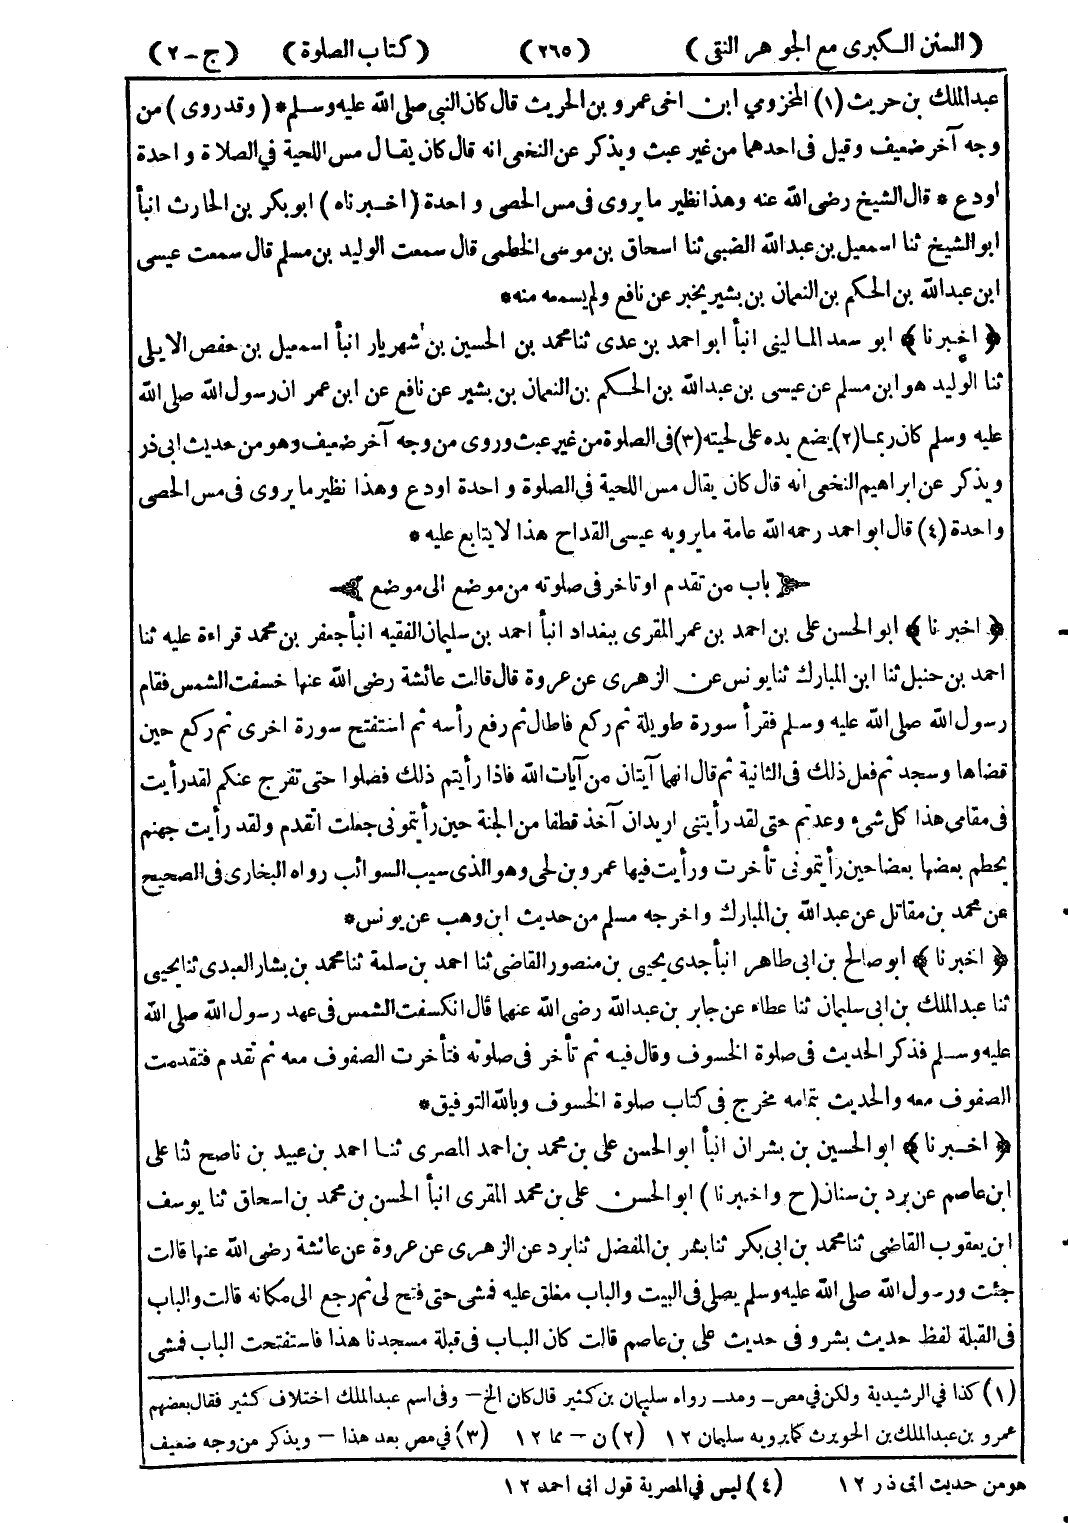 (السنن الكبرى مع الجوهر النقى) (٢٦٥) (كتاب الصلوة) (ج-٢)
عبدالملك بن حريث (١) المخزومي ابن اخى عمرو بن الحريث قال كان النبى صلى الله عليه وسلم * (وقد روى) من
وجه آخر ضعيف وقيل فى احدهما من غير عبث ويذكر عن النخعى انه قال كان يقال مس اللحية في الصلاة واحدة
اودع * قال الشيخ رضى الله عنه وهذا نظير ما يروى فى مس الحصى واحدة (اخبرناه) ابو بكر بن الحارث انبأ
ابو الشيخ ثنا اسمعيل بن عبدالله الضبي ثنا اسحاق بن موسى الخطمى قال سمعت الوليد بن مسلم قال سمعت عيسى
ابن عبدالله بن الحكم بن النعمان بن بشير يخبر عن نافع ولم يسمعه منه *
﴿اخبرنا﴾ ابو سعد المالينى انبأ ابو احمد بن عدى ثنا محمد بن الحسين بن شهريار انبأ اسمعيل بن حفص الايلى
ثنا الوليد هو ابن مسلم عن عيسى بن عبدالله بن الحكم بن النعمان بن بشير عن نافع عن ابن عمر ان رسول الله صلى الله
عليه وسلم كان ربما (٢) يضع يده على لحيته (٣) فى الصلوة من غير عبث وروى من وجه آخر ضعيف وهو من حديث ابى ذر
ويذكر عن ابراهيم النخعى انه قال كان يقال مس اللحية في الصلوة واحدة اودع وهذا نظير ما يروى فى مس الحصى
واحدة (٤) قال ابو احمد رحمه الله عامة ما يرويه عيسى القداح هذا لا يتابع عليه *
باب من تقدم او تاخر فى صلوته من موضع الى موضع
﴿اخبرنا﴾ ابو الحسن على بن احمد بن عمر المقرى ببغداد انبأ احمد بن سليمان الفقيه انبأ جعفر بن محمد قراءة عليه ثنا
احمد بن حنبل ثنا ابن المبارك ثنا يونس عن الزهرى عن عروة قال قالت عائشة رضى الله عنها خسفت الشمس فقام
رسول الله صلى الله عليه وسلم فقرأ سورة طويلة ثم ركع فاطال ثم رفع رأسه ثم استفتح سورة اخرى ثم ركع حين
قضاها وسجد ثم فعل ذلك فى الثانية ثم قال انهما آيتان من آيات الله فاذا رأيتم ذلك فصلوا حتى تفرج عنكم لقد رأيت
فى مقامى هذا كل شىء وعدتم حتى لقد رأيتنى اريد ان آخذ قطفا من الجنة حين رأيتمونى جعلت اتقدم ولقد رأيت جهنم
يحطم بعضها بعضا حين رأيتمونى تأخرت ورأيت فيها عمرو بن لحى وهو الذى سيب السوائب رواه البخارى فى الصحيح
عن محمد بن مقاتل عن عبدالله بن المبارك واخرجه مسلم من حديث ابن وهب عن يونس *
﴿اخبرنا﴾ ابو صالح بن ابى طاهر انبأ جدى يحيى بن منصور القاضى ثنا احمد بن سلمة ثنا محمد بن بشار العبدى ثنا يحيى
ثنا عبدالملك بن ابى سليمان ثنا عطاء عن جابر بن عبدالله رضى الله عنهما قال انكسفت الشمس فى عهد رسول الله صلى الله
عليه وسلم فذكر الحديث فى صلوة الخسوف وقال فيه ثم تأخر فى صلوته فتأخرت الصفوف معه ثم تقدم فتقدمت
الصفوف معه والحديث بتمامه مخرج فى كتاب صلوة الخسوف وبالله التوفيق *
﴿اخبرنا﴾ ابو الحسين بن بشران انبأ ابو الحسن على بن محمد بن احمد المصرى ثنا احمد بن عبيد بن ناصح ثنا على
ابن عاصم عن برد بن سنان (ح واخبرنا) ابو الحسن على بن محمد المقرى انبأ الحسن بن محمد بن اسحاق ثنا يوسف
ابن يعقوب القاضى ثنا محمد بن ابى بكر ثنا بشر بن المفضل ثنا برد عن الزهرى عن عروة عن عائشة رضى الله عنها قالت
جئت ورسول الله صلى الله عليه وسلم يصلى فى البيت والباب مغلق عليه فمشى حتى فتح لى ثم رجع الى مكانه قالت والباب
فى القبلة لفظ حديث بشر وفى حديث على بن عاصم قالت كان الباب فى قبلة مسجدنا هذا فاستفتحت الباب فمشى
(١) كذا في الرشيدية ولكن في مص - ومد - رواه سليمان بن كثير قال كان الخ - وفى اسم عبدالملك اختلاف كثير فقال بعضهم
عمرو بن عبدالملك بن الحويرث كما يرويه سليمان ١٢ (٢) ن - مما ١٢ (٣) في مص بعد هذا - ويذكر من وجه ضعيف
هو من حديث ابى ذر ١٢ (٤) ليس في المصرية قول ابى احمد ١٢